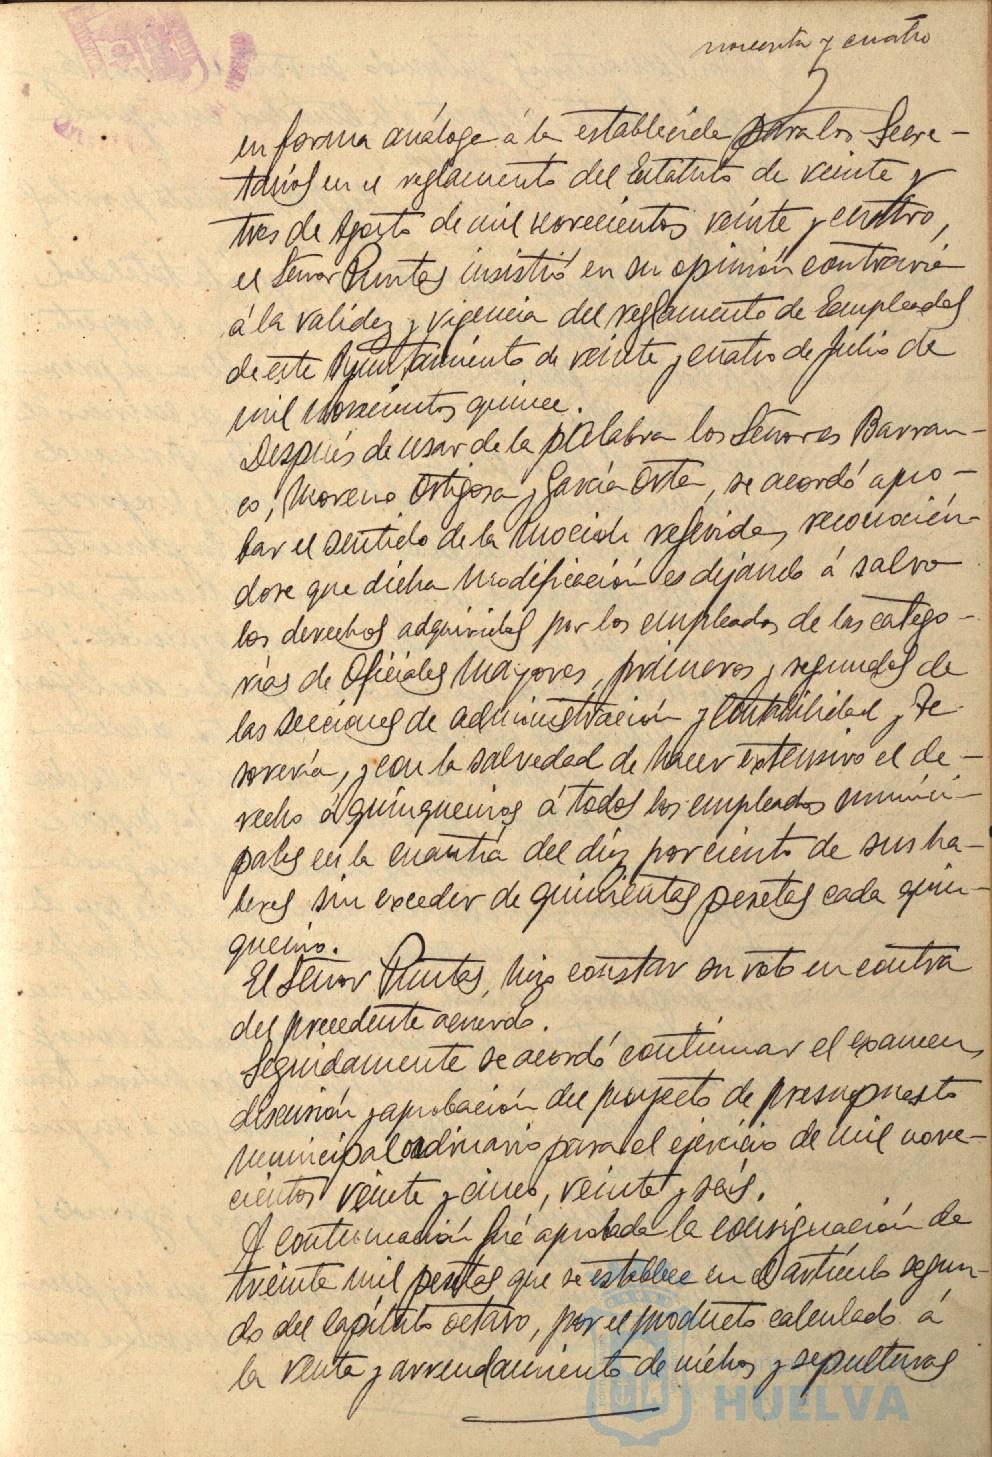 noventa y cuatro
en forma análoga á la establecida para los Secre-
tarios en el reglamento del Estatuto de veinte y
tres de Agosto de mil novecientos veinte y cuatro,
el Señor Puntas insistió en su opinión contraria
á la validez y vigencia del reglamento de Empleados
de este Ayuntamiento de veinte y cuatro de Julio de
mil novecientos quince.
Después de usar de la palabra los Señores Barran-
co, Moreno Ortigosa y García Orta, se acordó apro-
bar el sentido de la moción referida, reconocién-
dose que dicha modificación es dejando á salvo
los derechos adquiridos por los empleados de las catego-
rías de Oficiales mayores, primeros y segundos de
las secciones de administración y Contabilidad y Te-
sorería, y con la salvedad de hacer extensivo el de-
recho á quinquenios á todos los empleados munici-
pales en la cuantía del diez por ciento de sus ha-
beres sin exceder de quinientas pesetas cada quin-
quenio.
El Señor Puntas, hizo constar su voto en contra
del precedente acuerdo.
Seguidamente se acordó continuar el examen,
discusión y aprobación del proyecto de presupuesto
municipal ordinario para el ejercicio de mil nove-
cientos veinte y cinco, veinte y seis.
A continuación fué aprobada la consignación de
treinta mil pesetas que se establece en el artículo segun-
do del capítulo octavo, por el producto calculado á
la venta y arrendamiento de nichos y sepulturas
HUELVA